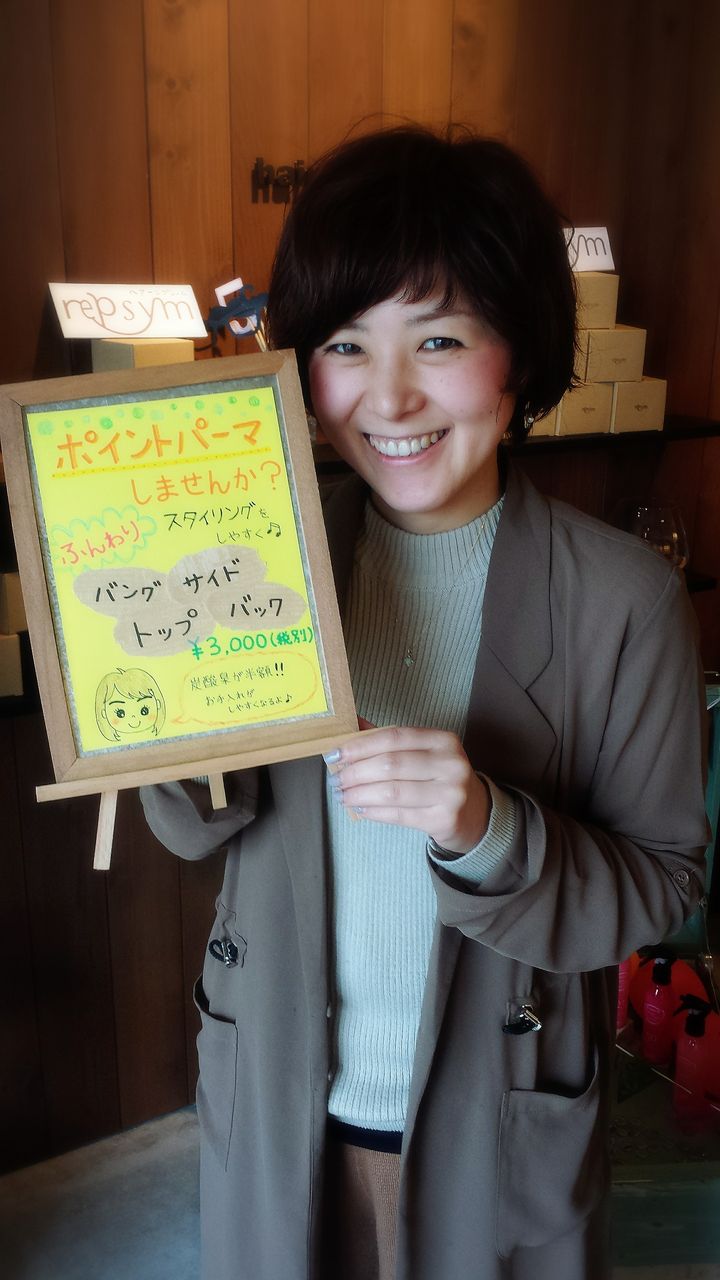 hair
ヘアーリシム
repsym
ym
ポイントパーマ
しませんか?
ふんわり
スタイリングを
しやすく♫
バング
サイド
トップ
バック
¥3,000(税別)
炭酸泉が半額!!
お手入れが
しやすくなるよ♪